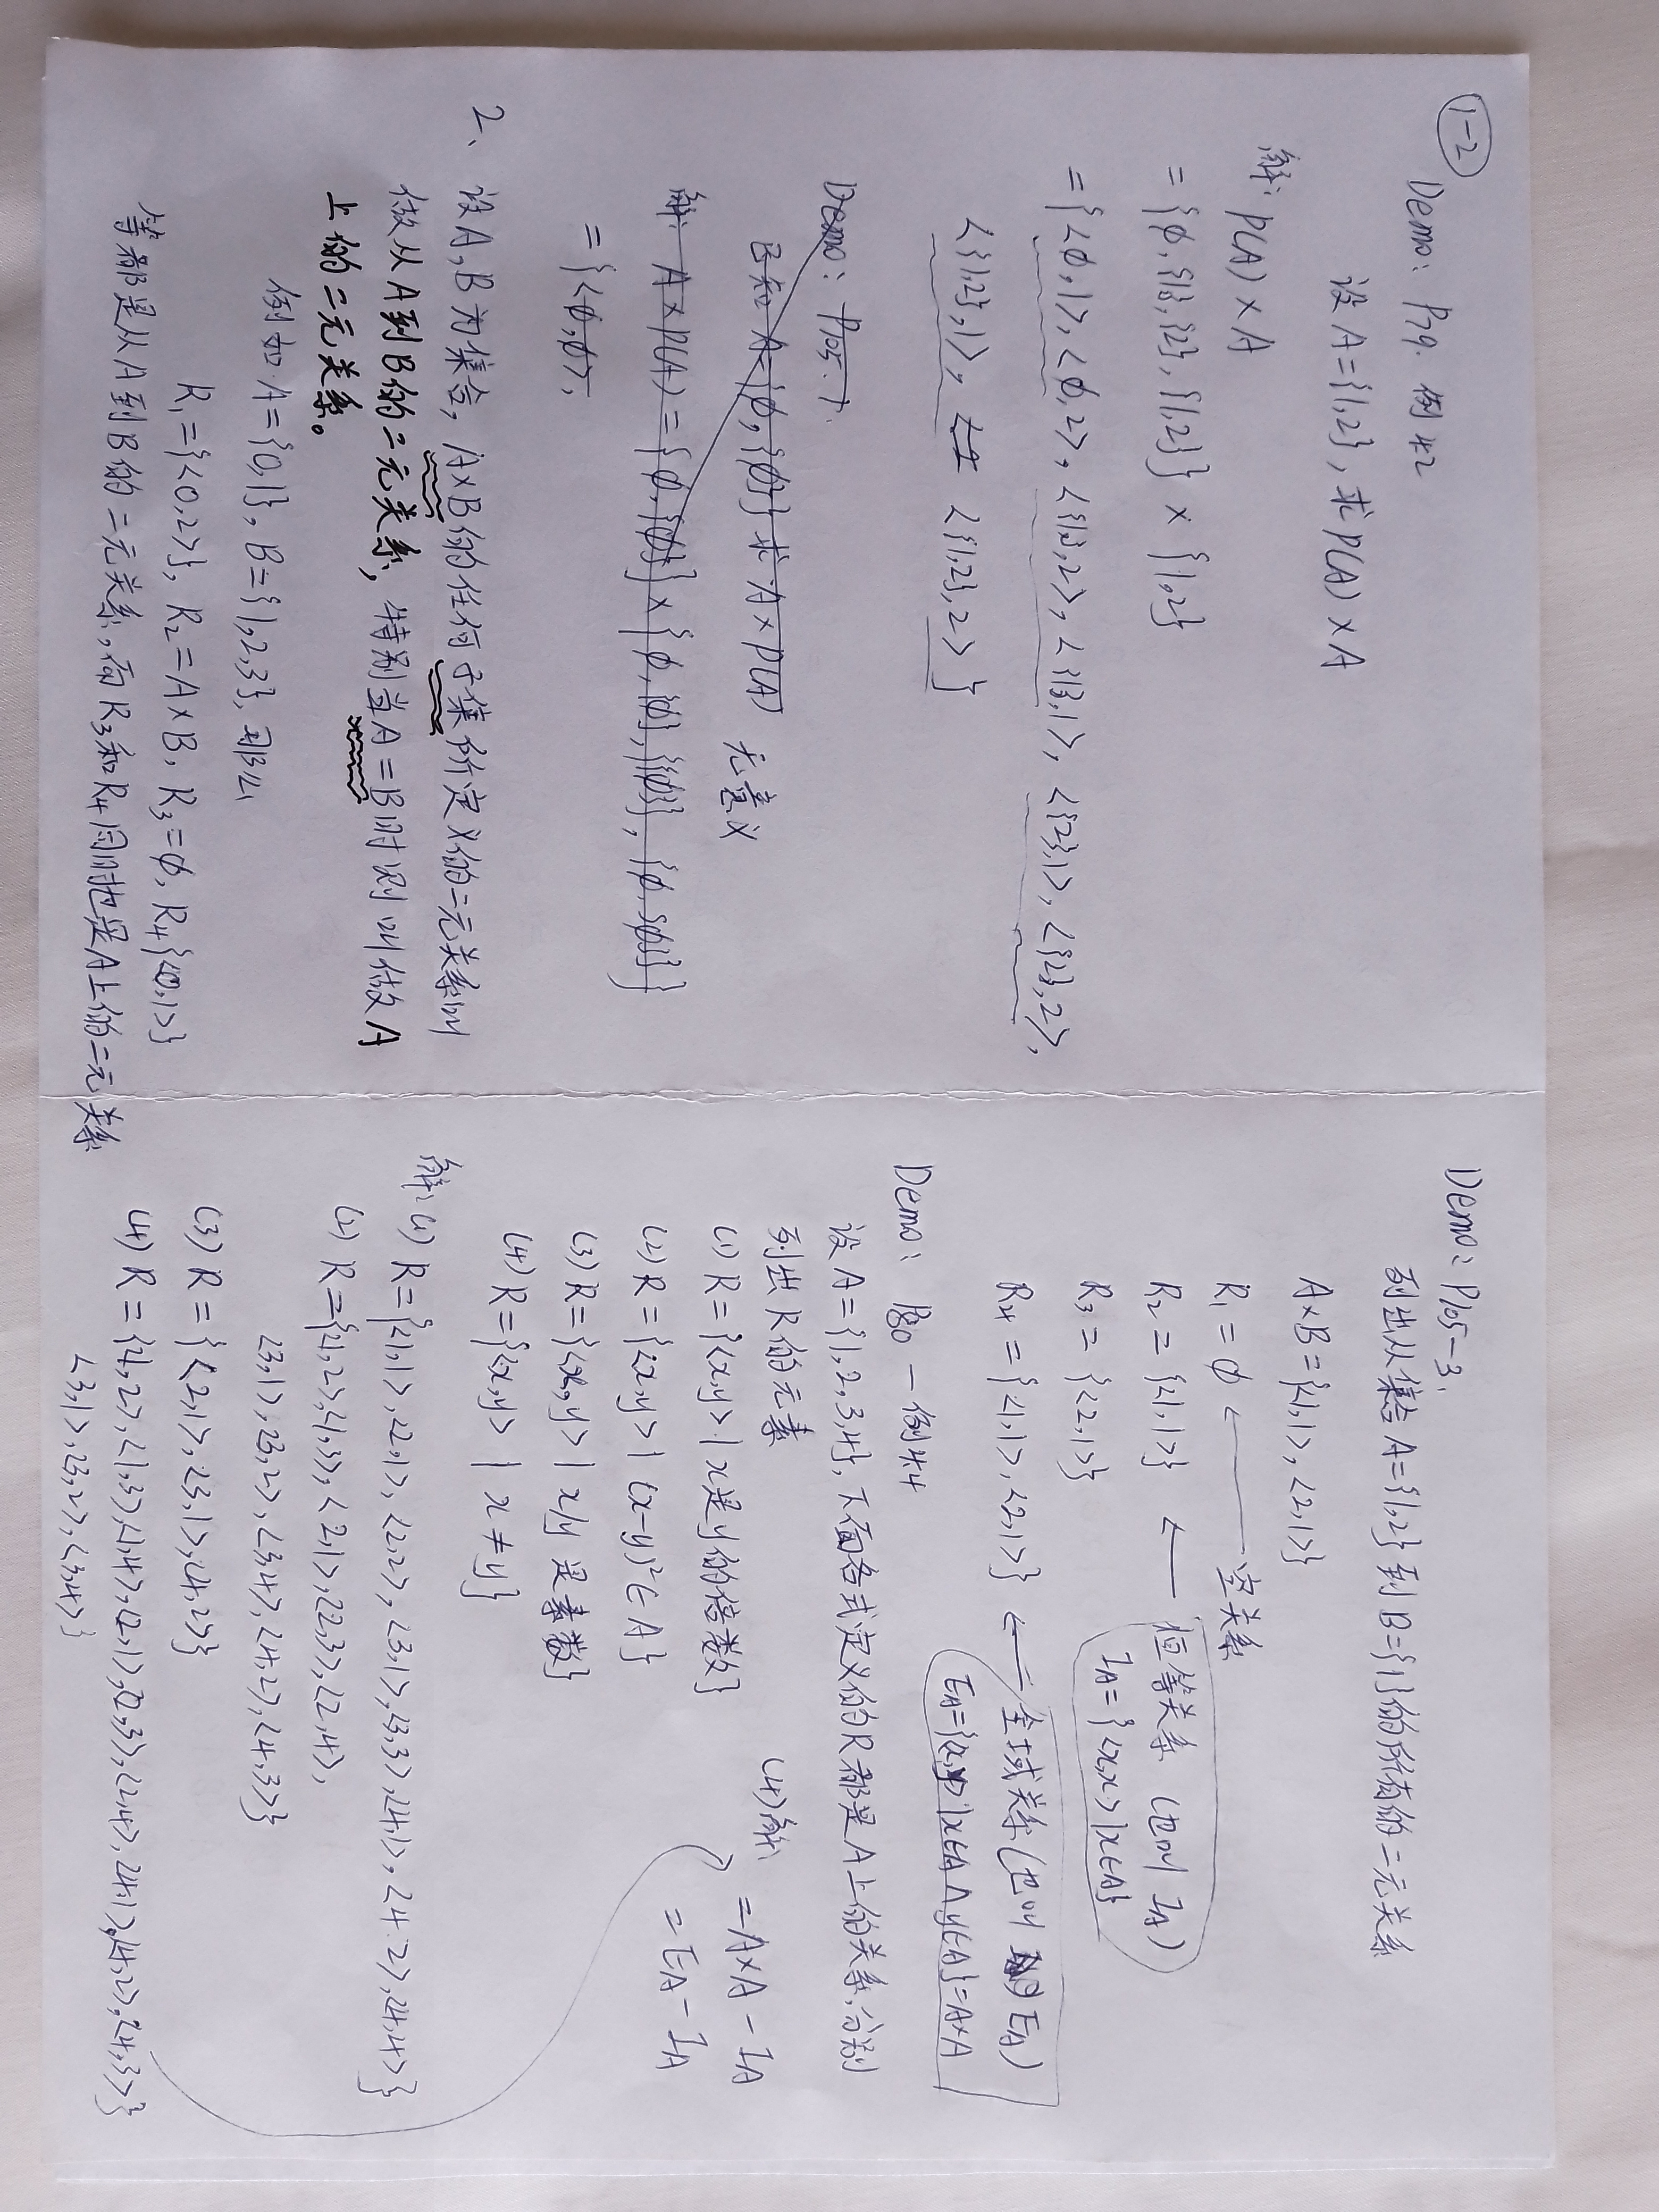 1-2
Demo: P79. 例4.2
设A={1,2},求P(A)×A
解:
P(A)×A
={φ,{1},{2},{1,2}} × {1,2}
={<φ,1>,<φ,2>,<{1},2>,<{1},1>,<{2},1>,<{2},2>,
<{1,2},1>, <{1,2},2>}
Demo: P105.1.
已知A={φ,{φ}}求A×P(A) 无意义
解: A×P(A)={φ,{φ}}×{φ,{φ},{{φ}},{φ,{φ}}}
={<φ,φ>,
2、设A,B为集合,A×B的任何子集所定义的二元关系叫
做从A到B的二元关系,特别当A=B时则叫做A
上的二元关系。
例如A={0,1},B={1,2,3},那么
R₁={<0,2>}, R₂=A×B, R₃=φ, R₄{<0,1>}
等都是从A到B的二元关系,而R₃和R₄同时也是A上的二元关系
Demo: P105-3.
列出从集合A={1,2}到B={1}的所有的二元关系
A×B={<1,1>,<2,1>}
R₁=φ ← 空关系
R₂={<1,1>} ← 恒等关系 (也叫 I_A)
I_A={<x,x>|x∈A}
R₃={<2,1>}
R₄={<1,1>,<2,1>} ← 全域关系(也叫 E_A)
E_A={<x,y>|x∈A∧y∈A}=A×A
Demo: P80-例4.4
设A={1,2,3,4},下面各式定义的R都是A上的关系,分别
列出R的元素
(1) R={<x,y>|x是y的倍数}
(2) R={<x,y>|(x-y)²∈A}
(3) R={<x,y>|x/y是素数}
(4) R={<x,y>|x≠y}
(4)解:
=A×A-I_A
=E_A-I_A
解:(1) R={<1,1>,<2,1>,<2,2>,<3,1>,<3,3>,<4,1>,<4.2>,<4,4>}
(2) R={<1,2>,<1,3>,<2,1>,<2,3>,<2,4>,
<3,1>,<3,2>,<3,4>,<4,2>,<4,3>}
(3) R={<2,1>,<3,1>,<4,2>}
(4) R={<1,2>,<1,3>,<1,4>,<2,1>,<2,3>,<2,4>,<4,1>,<4,2>,<4,3>}
<3,1>,<3,2>,<3,4>}